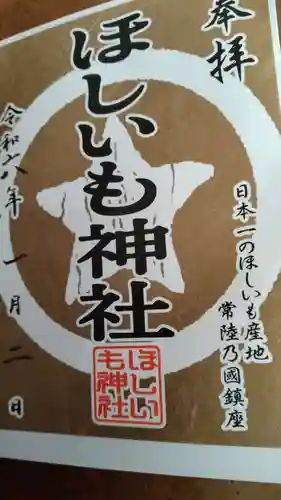 奉拝
日本一のほしいも産地
常陸乃國鎮座
ほしいも神社
ほしい
も神社
令和六年一月二日